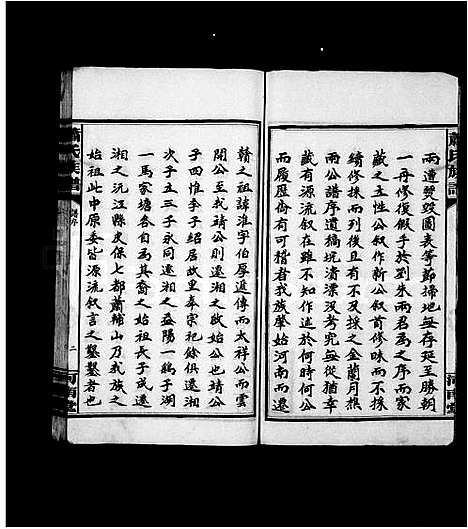 蕭氏族譜
兩遭燹毀圖表等節掃地無存延至勝朝
一再修復假手於劉朱兩君為之序而家
藏之主性公叙作新公叙首修昧而不採
續修採而列後且有不及採之金蘭月樵
兩公譜序遺稿坑漬漂沒考究無從猶幸
藏有源流叙在雖不知作述於何時何公
而履歷斎有可稽者我族肇始河南而遷
河南堂
蕭氏族譜
譜序
贛之祖諱淮字伯厚遞傳而太祥公而雲
開公至我靖公則遷湘之啟始公也靖公
子四惟季子紹居故里奉宗祀餘俱遷湘
次子立三子永同遷湘之益陽一鷄子湖
一馬家塘各自為其裔之始祖長子成遷
湘之沅江縣史保七都蕭輔山乃我族之
始祖此中原委皆源流叙言之鑿鑿者也
二
河南堂